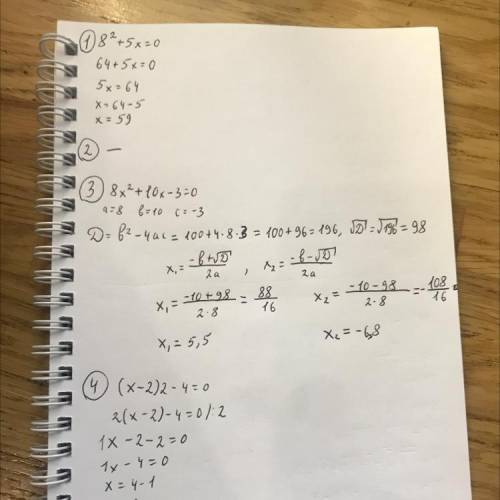 ① 8²+5x=0
64+5x=0
5x=64
x=64-5
x=59
② —
③ 8x²+10x-3=0
a=8 b=10 c=-3
D=b²-4ac=100+4·8·3=100+96=196, √D=√196=98
x₁=(-b+√D)/2a, x₂=(-b-√D)/2a
x₁=(-10+98)/(2·8)=88/16 x₂=(-10-98)/(2·8)=-108/16=
x₁=5,5 x₂=-6,8
④ (x-2)2-4=0
2(x-2)-4=0/:2
1x-2-2=0
1x-4=0
x=4-1